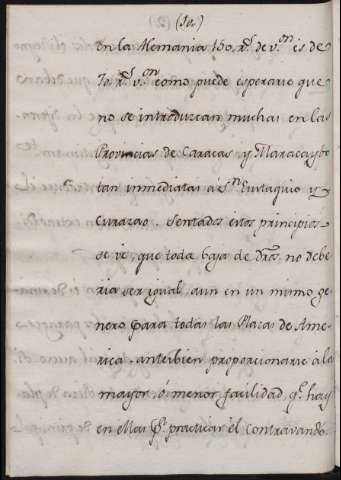 (10.)
en la Alemania 150. r.s de v.on es de
70. r.s v.on como puede esperarse que
no se introduzcan muchas en las
Provincias de Caracas y Maracaybo
tan inmediatas a S.n Eustaquio y
Curazao. Sentados estos principios
se ve, que toda baja de dros. no debe
ria ser igual aun en un mismo ge
nero para todas las Plazas de Ame
rica antesbien proporcionarse à la
mayor, ò menor facilidad, q.e hay
en ellas p.a practicar el contravando.